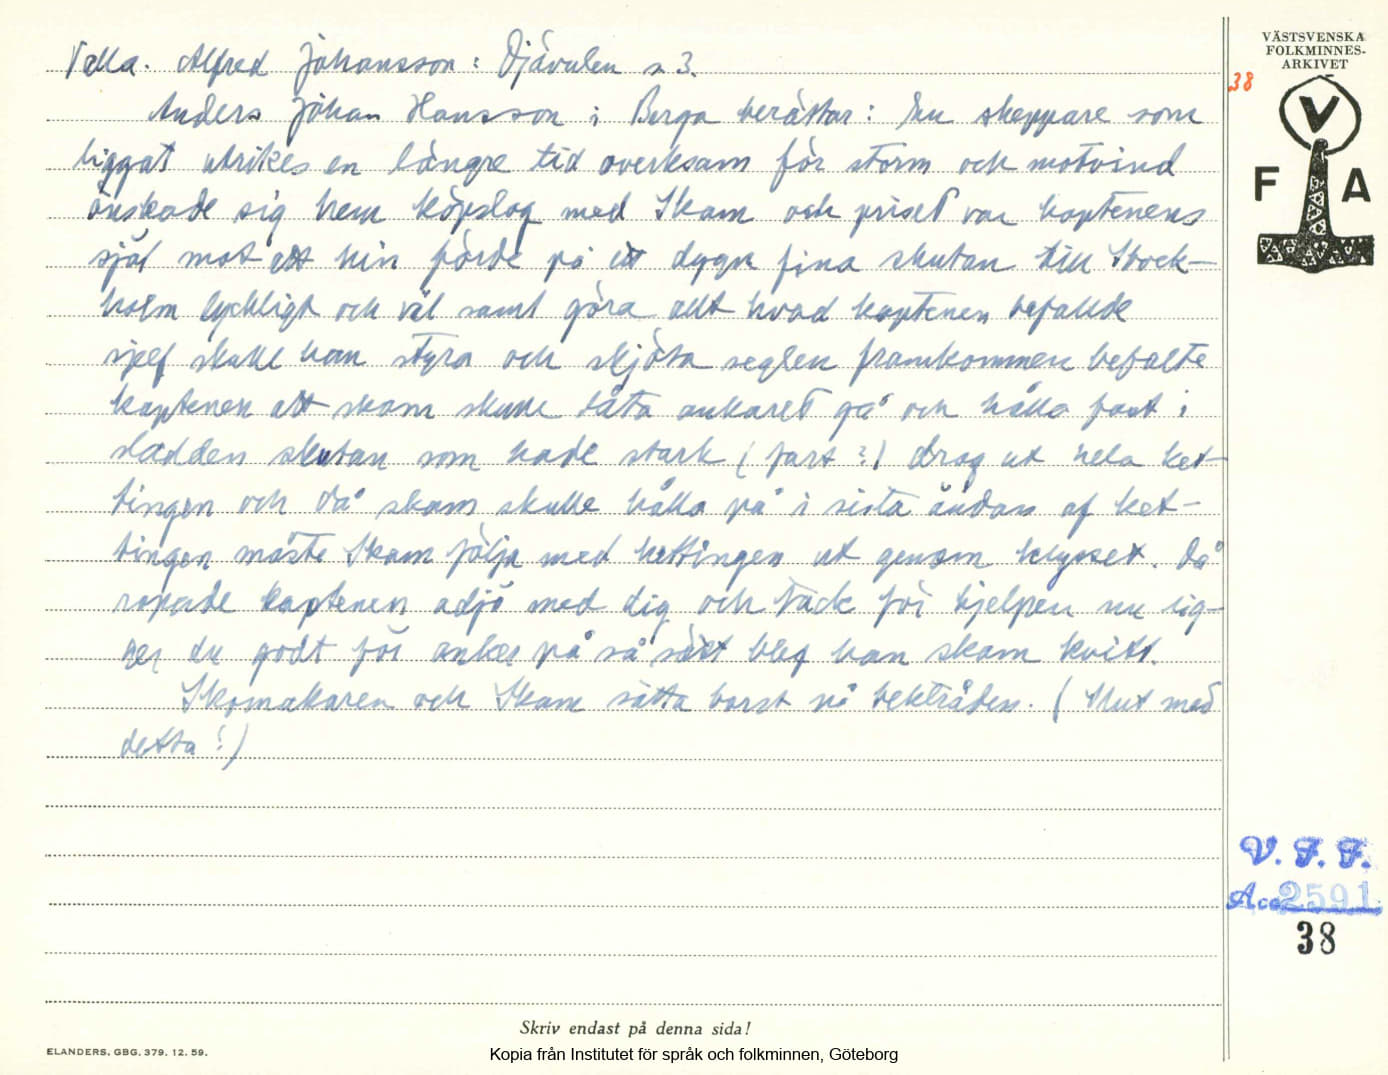 Valla. Alfred Johansson: Djävulen s 3.
Anders Johan Hansson i Berga berättar: En skeppare som
liggat utrikes en längre tid overksam för storm och motvind
önskade sig hem köpslog med Skam och priset var kaptenens
själ mot att hin förde på ett dygn fina skutan till Stock-
holm lyckligt och väl samt göra allt hvad kaptenen befallde
sjelf skulle han styra och skjöta seglen framkommen befalte
kaptenen att skam skulle låta ankaret gå och hålla fast i
sladden skutan som hade stark (fart?) drog ut hela ket-
tingen och då skam skulle hålla på i sista ändan af ket-
tingen måste Skam följa med kettingen ut genom klysset. Då
ropade kaptenen adjö med dig och tack för hjelpen nu lig-
ger du godt för anker på så sätt bleg han skam kvitt.
Skomakaren och Skam sätta borst på bektråden. (Slut med
detta!)
VÄSTSVENSKA
FOLKMINNES-
ARKIVET
38
V
F A
V. F. F.
Acc 2591
38
Skriv endast på denna sida!
ELANDERS, GBG. 379. 12. 59.
Kopia från Institutet för språk och folkminnen, Göteborg